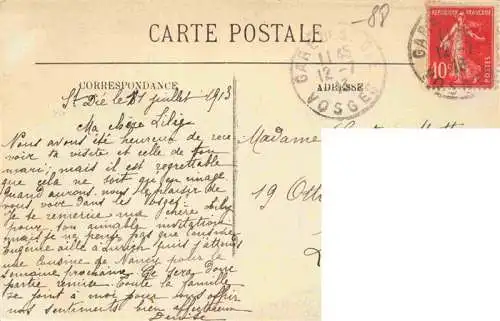 -88
CARTE POSTALE
RÉPUBLIQUE FRANÇAISE
10
POSTES
GARE
11 45
12 -7
VOSGES
GARE
CORRESPONDANCE
ADRESSE
St Dié le 11 juillet 1913
Ma chère
Nous avons été heureux de rece-
voir ta visite et celle de ton
mari; mais il est regrettable
que cela ne soit qu'en
Quand aurons-nous le plaisir de
vous dans les Vosges
Je te remercie ma chère
pour ton aimable invitation
mais je ne pense pas que
Eugénie aille à puis j'attends
une cousine de Nancy pour la
semaine prochaine. Ce sera donc
partie remise. Toute la famille
se joint à moi pour vous offrir
nos sentiments bien affectueux
Denise
Madame
19